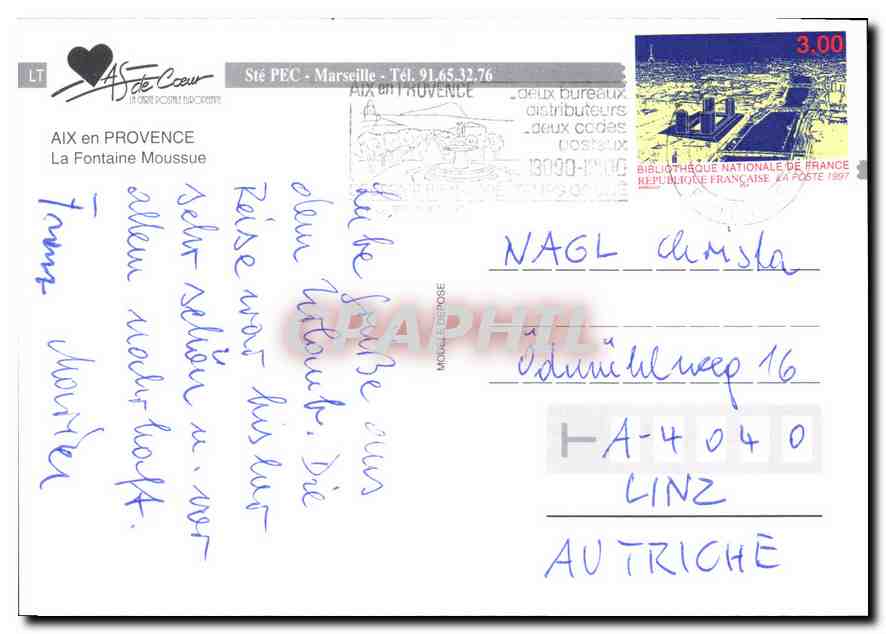 LT
AS de Cœur
LA CARTE POSTALE EUROPEENNE
Sté PEC - Marseille - Tél. 91.65.32.76
AIX en PROVENCE
La Fontaine Moussue
AIX en PROVENCE
deux bureaux
distributeurs
deux codes
postaux
3.00
BIBLIOTHÈQUE NATIONALE DE FRANCE
RÉPUBLIQUE FRANÇAISE LA POSTE 1997
Liebe Grüße aus
dem Urlaub. Die
Reise war bisher
sehr schön u. vor
allem nahrhaft.
MODÈLE DÉPOSÉ
CPAPHIL
NAGL Christa
Ödmühlweg 16
A-4040
LINZ
AUTRICHE